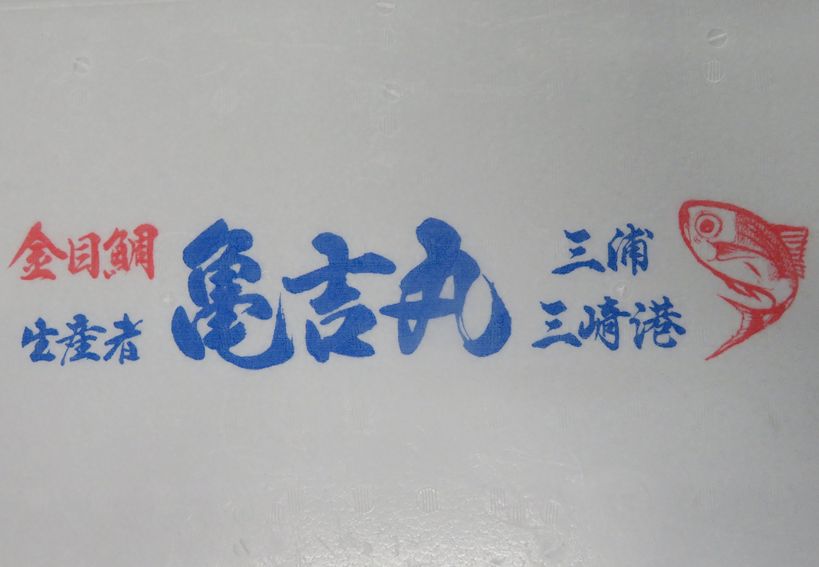 金目鯛
生産者
亀吉丸
三浦
三崎港